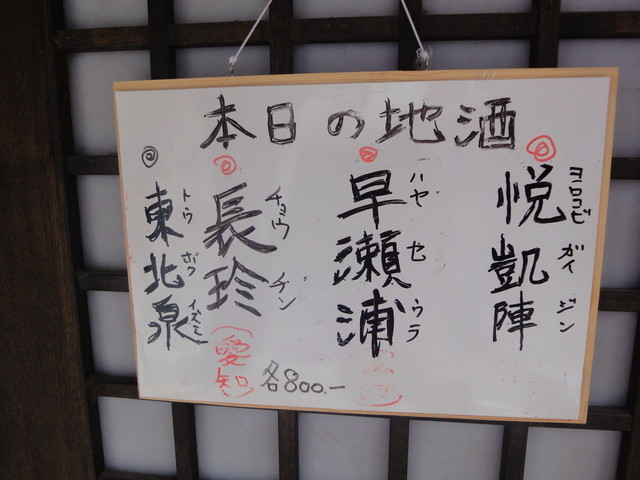 本日の地酒
悦凱陣
ヨロコビ ガイ ジン
早瀬浦
ハヤ セ ウラ
長珍
チョウ チン
(愛知)
東北泉
トウ ホク イズミ
各800.-